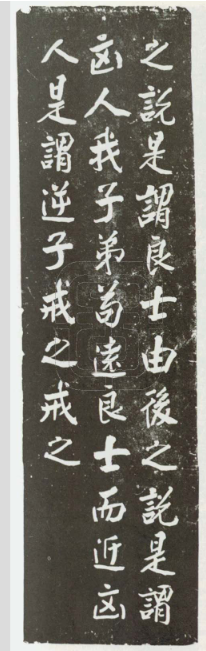 之說是謂良士由後之說是謂
凶人我子弟茍遠良士而近凶
人是謂逆子戒之戒之